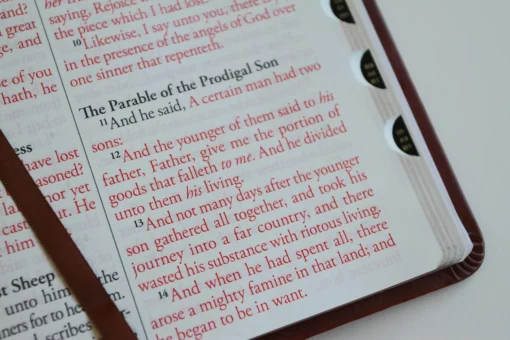 and?
great
ge, and
se of you
hath, he
ess
have lost
asoned?
nor yet
cast out. He
him
st Sheep
unto him
ners for to he
scribes
her
saying, Rejoice
the piece which I had lost.
10 Likewise, I say unto you, there is joy
in the presence of the angels of God over
one sinner that repenteth.
The Parable of the Prodigal Son
11 And he said, A certain man had two
sons:
12 And the younger of them said to his
father, Father, give me the portion of
goods that falleth to me. And he divided
unto them his living.
13 And not many days after the younger
son gathered all together, and took his
journey into a far country, and there
wasted his substance with riotous living.
14 And when he had spent all, there
arose a mighty famine in that land; and
he began to be in want.